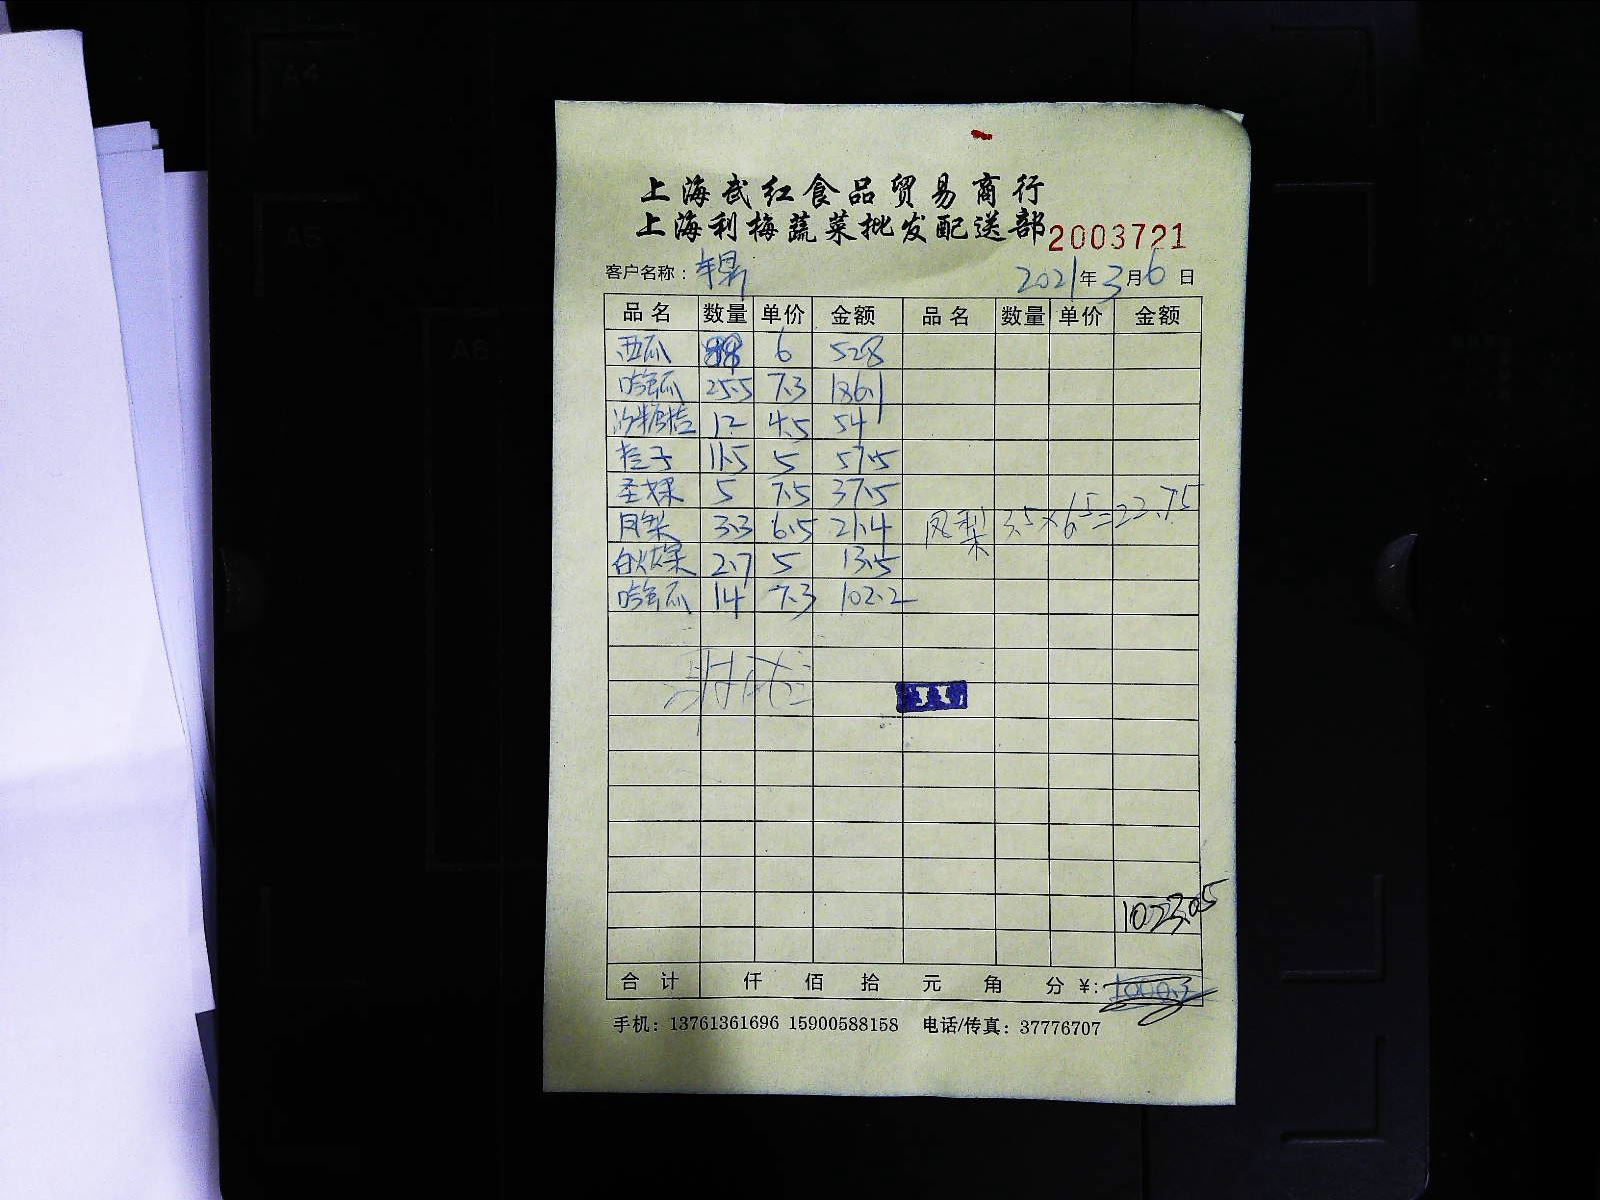 上海武红食品贸易商行
上海利梅蔬菜批发配送部 2003721
客户名称: 2021年3月6日
品名 数量 单价 金额 品名 数量 单价 金额
西瓜 88 6 528
哈密瓜 25.5 7.3 186.1
沙糖桔 12 4.5 54
桔子 11.5 5 57.5
圣女果 5 7.5 37.5
凤梨 3.3 6.5 21.4 凤梨 3.5×6.5=22.75
白火龙果 2.7 5 13.5
哈密瓜 14 7.3 102.2
1023.05
合计 仟 佰 拾 元 角 分 ¥: 1000.3
手机: 13761361696 15900588158 电话/传真: 37776707
A4
A5
A6